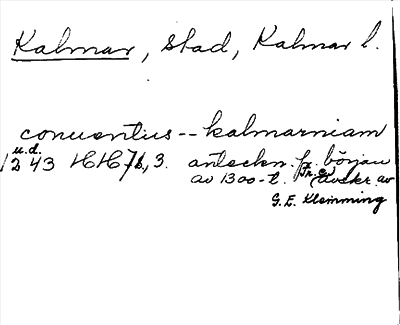 Kalmar, stad, Kalmar l.
conventus -- kalmarniam
u.d.
1243 HH 7b, 3. anteckn. fr. början
av 1300-t. Tr. o. av
G. E. Klemming